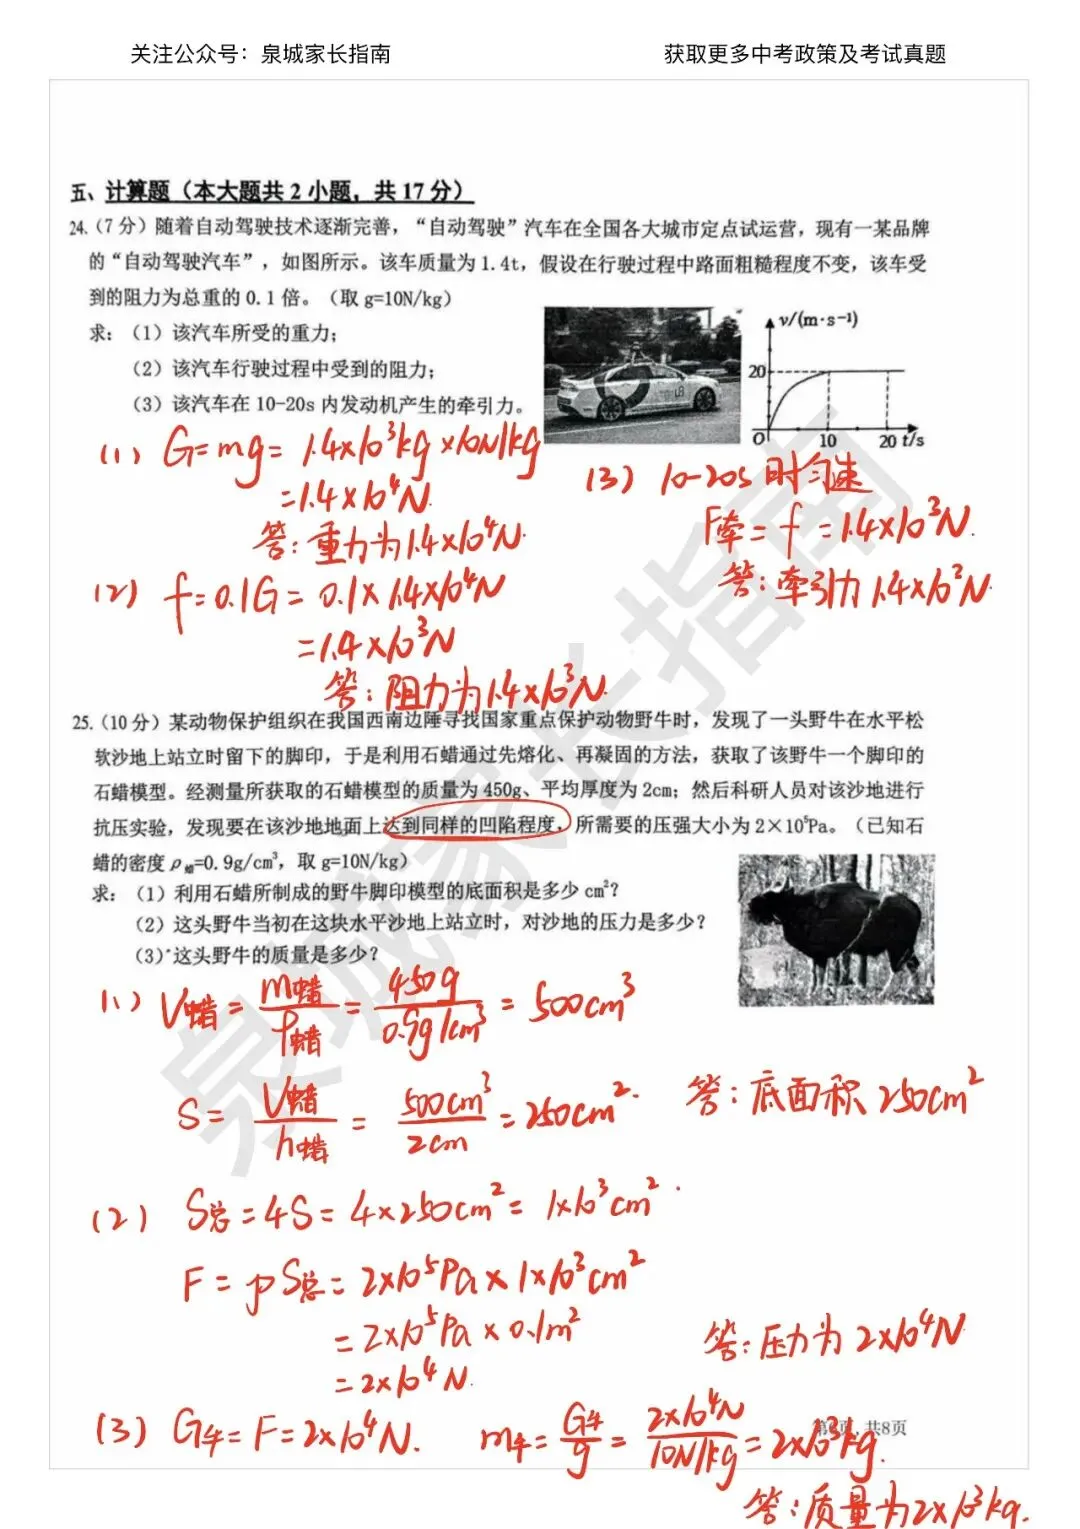 关注公众号：泉城家长指南
获取更多中考政策及考试真题
五、计算题（本大题共 2 小题，共 17 分）
24.（7 分）随着自动驾驶技术逐渐完善，“自动驾驶”汽车在全国各大城市定点试运营，现有一某品牌
的“自动驾驶汽车”，如图所示。该车质量为 1.4t，假设在行驶过程中路面粗糙程度不变，该车受
到的阻力为总重的 0.1 倍。（取 g=10N/kg）
求：（1）该汽车所受的重力；
（2）该汽车行驶过程中受到的阻力；
（3）该汽车在 10-20s 内发动机产生的牵引力。
v/(m·s⁻¹)
20
O 10 20 t/s
(1) G=mg= 1.4×10³kg×10N/kg
=1.4×10⁴N.
答：重力为1.4×10⁴N.
(2) f=0.1G= 0.1×1.4×10⁴N
=1.4×10³N
答：阻力为1.4×10³N.
(3) 10-20s 时匀速
F牵= f =1.4×10³N.
答：牵引力1.4×10³N.
25.（10 分）某动物保护组织在我国西南边陲寻找国家重点保护动物野牛时，发现了一头野牛在水平松
软沙地上站立时留下的脚印，于是利用石蜡通过先熔化、再凝固的方法，获取了该野牛一个脚印的
石蜡模型。经测量所获取的石蜡模型的质量为 450g、平均厚度为 2cm；然后科研人员对该沙地进行
抗压实验，发现要在该沙地地面上达到同样的凹陷程度，所需要的压强大小为 2×10⁵Pa。（已知石
蜡的密度ρ蜡=0.9g/cm³，取 g=10N/kg）
求：（1）利用石蜡所制成的野牛脚印模型的底面积是多少 cm²？
（2）这头野牛当初在这块水平沙地上站立时，对沙地的压力是多少？
（3）这头野牛的质量是多少？
(1) V蜡 = m蜡/ρ蜡 = 450g/0.9g/cm³ = 500cm³
S= V蜡/h蜡 = 500cm³/2cm =250cm².
答：底面积 250cm²
(2) S总=4S= 4×250cm²= 1×10³cm².
F = pS总= 2×10⁵Pa×1×10³cm²
= 2×10⁵Pa×0.1m²
= 2×10⁴N.
答：压力为 2×10⁴N
(3) G牛= F=2×10⁴N. m牛= G牛/g = 2×10⁴N/10N/kg =2×10³kg.
共8页
答：质量为2×10³kg.
泉城家长指南